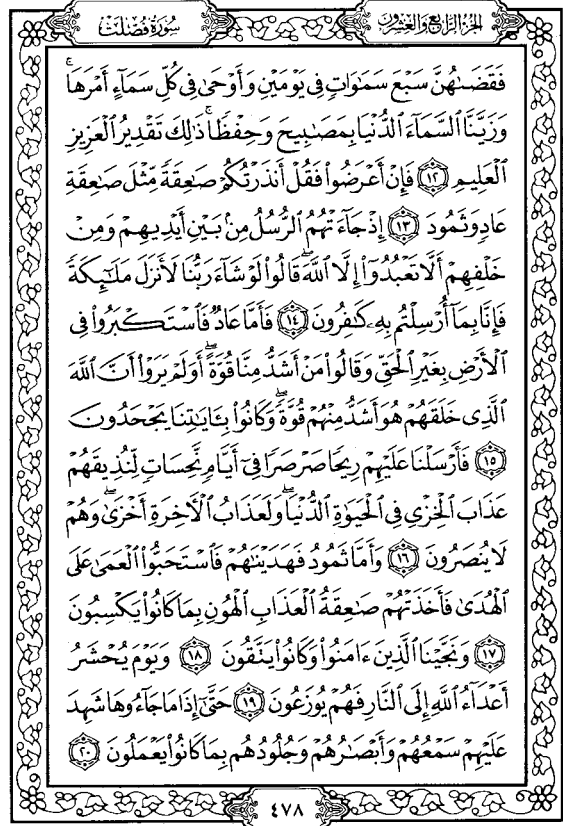 سُورَةُ فُصِّلَتْ
الجُزءُ الرَّابِعُ وَالعِشْرُونَ
فَقَضَىٰهُنَّ سَبْعَ سَمَٰوَاتٍ فِي يَوْمَيْنِ وَأَوْحَىٰ فِي كُلِّ سَمَآءٍ أَمْرَهَا ۚ
وَزَيَّنَّا ٱلسَّمَآءَ ٱلدُّنْيَا بِمَصَٰبِيحَ وَحِفْظًا ۚ ذَٰلِكَ تَقْدِيرُ ٱلْعَزِيزِ
ٱلْعَلِيمِ ١٢ فَإِنْ أَعْرَضُوا۟ فَقُلْ أَنذَرْتُكُمْ صَٰعِقَةً مِّثْلَ صَٰعِقَةِ
عَادٍ وَثَمُودَ ١٣ إِذْ جَآءَتْهُمُ ٱلرُّسُلُ مِنۢ بَيْنِ أَيْدِيهِمْ وَمِنْ
خَلْفِهِمْ أَلَّا تَعْبُدُوٓا۟ إِلَّا ٱللَّهَ ۖ قَالُوا۟ لَوْ شَآءَ رَبُّنَا لَأَنزَلَ مَلَٰٓئِكَةً
فَإِنَّا بِمَآ أُرْسِلْتُم بِهِۦ كَٰفِرُونَ ١٤ فَأَمَّا عَادٌ فَٱسْتَكْبَرُوا۟ فِي
ٱلْأَرْضِ بِغَيْرِ ٱلْحَقِّ وَقَالُوا۟ مَنْ أَشَدُّ مِنَّا قُوَّةً ۖ أَوَلَمْ يَرَوْا۟ أَنَّ ٱللَّهَ
ٱلَّذِي خَلَقَهُمْ هُوَ أَشَدُّ مِنْهُمْ قُوَّةً ۖ وَكَانُوا۟ بِـَٔايَٰتِنَا يَجْحَدُونَ
١٥ فَأَرْسَلْنَا عَلَيْهِمْ رِيحًا صَرْصَرًا فِيٓ أَيَّامٍ نَّحِسَاتٍ لِّنُذِيقَهُمْ
عَذَابَ ٱلْخِزْيِ فِي ٱلْحَيَوٰةِ ٱلدُّنْيَا ۖ وَلَعَذَابُ ٱلْءَاخِرَةِ أَخْزَىٰ ۖ وَهُمْ
لَا يُنصَرُونَ ١٦ وَأَمَّا ثَمُودُ فَهَدَيْنَٰهُمْ فَٱسْتَحَبُّوا۟ ٱلْعَمَىٰ عَلَى
ٱلْهُدَىٰ فَأَخَذَتْهُمْ صَٰعِقَةُ ٱلْعَذَابِ ٱلْهُونِ بِمَا كَانُوا۟ يَكْسِبُونَ
١٧ وَنَجَّيْنَا ٱلَّذِينَ ءَامَنُوا۟ وَكَانُوا۟ يَتَّقُونَ ١٨ وَيَوْمَ يُحْشَرُ
أَعْدَآءُ ٱللَّهِ إِلَى ٱلنَّارِ فَهُمْ يُوزَعُونَ ١٩ حَتَّىٰٓ إِذَا مَا جَآءُوهَا شَهِدَ
عَلَيْهِمْ سَمْعُهُمْ وَأَبْصَٰرُهُمْ وَجُلُودُهُم بِمَا كَانُوا۟ يَعْمَلُونَ ٢٠
٤٧٨